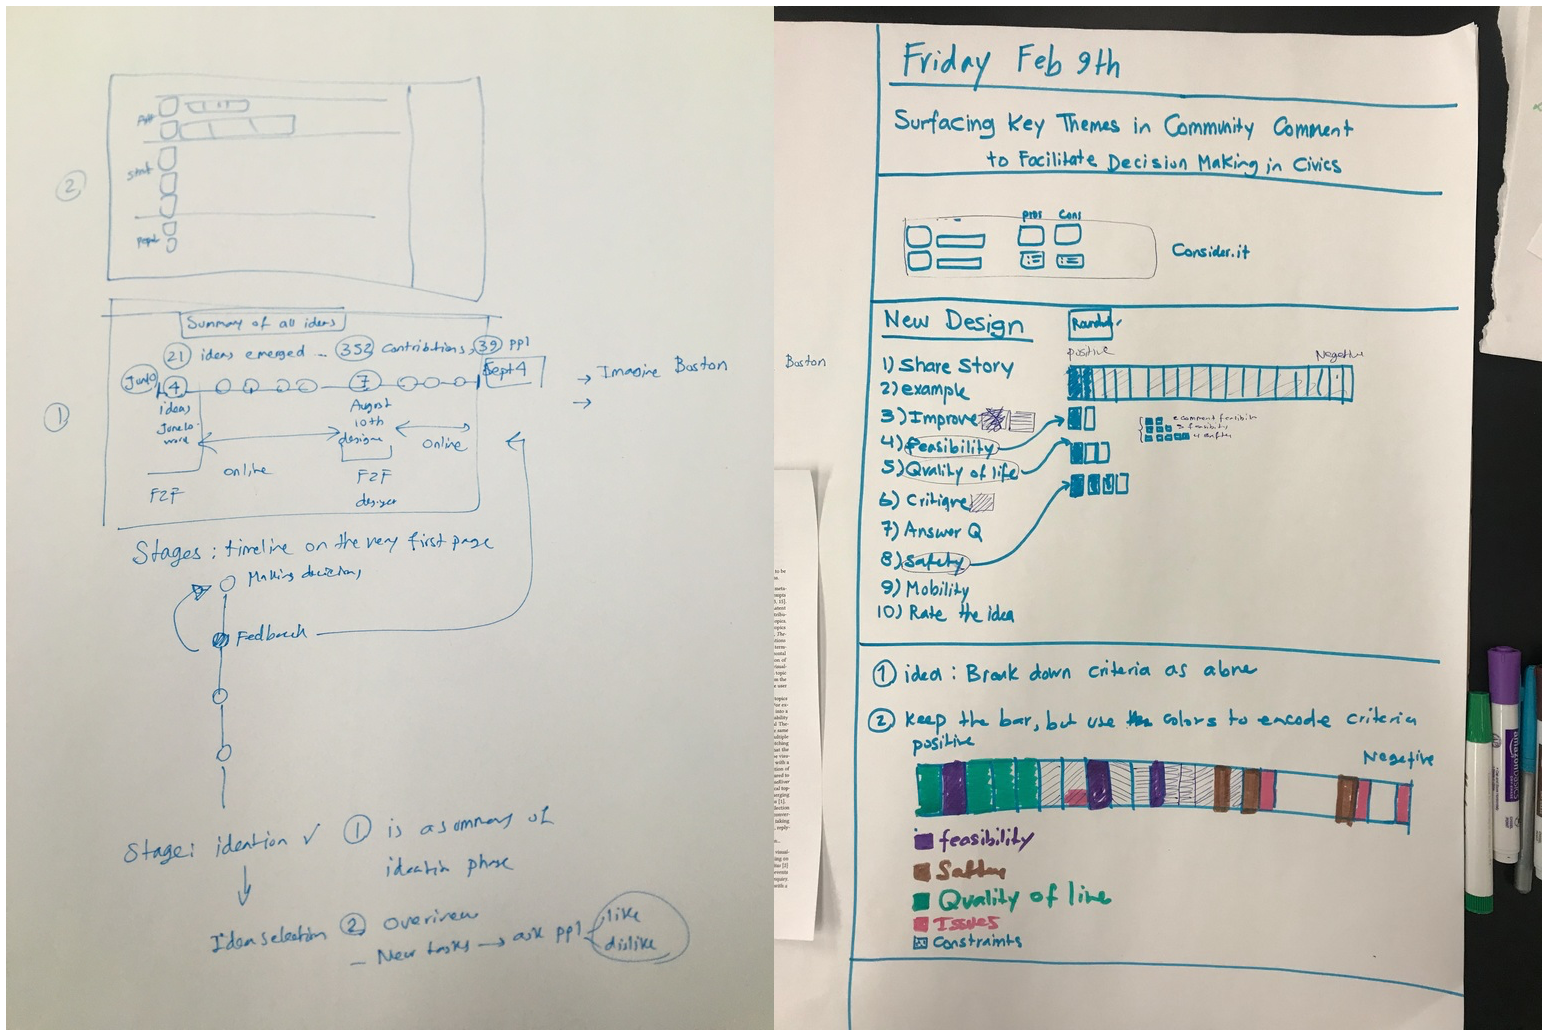 ②
Summary of all ideas
21 ideas emerged .. 352 Contributions, 39 ppl
4
7
Sept 4
→ Imagine Boston
→
①
ideas
August
10th
designe
online
online
F2F
F2F
Stages: timeline on the very first page
Making decisions
Fedback
Stage: ideation ✓
① is a summary of
ideation phase
Idea selection
② overview
– New tasks → ask ppl
like
dislike
Boston
Friday Feb 9th
Surfacing Key Themes in Community Comment
to Facilitate Decision Making in Civics
pros Cons
Consider.it
New Design
positive
Negative
1) Share Story
2) example
3) Improve
4) feasibility
5) Quality of life
6) Critique
7) Answer Q
8) Safety
9) Mobility
10) Rate the idea
① idea: Break down criteria as above
② Keep the bar, but use colors to encode criteria
positive
Negative
feasibility
Quality of line
Issues
Constraints